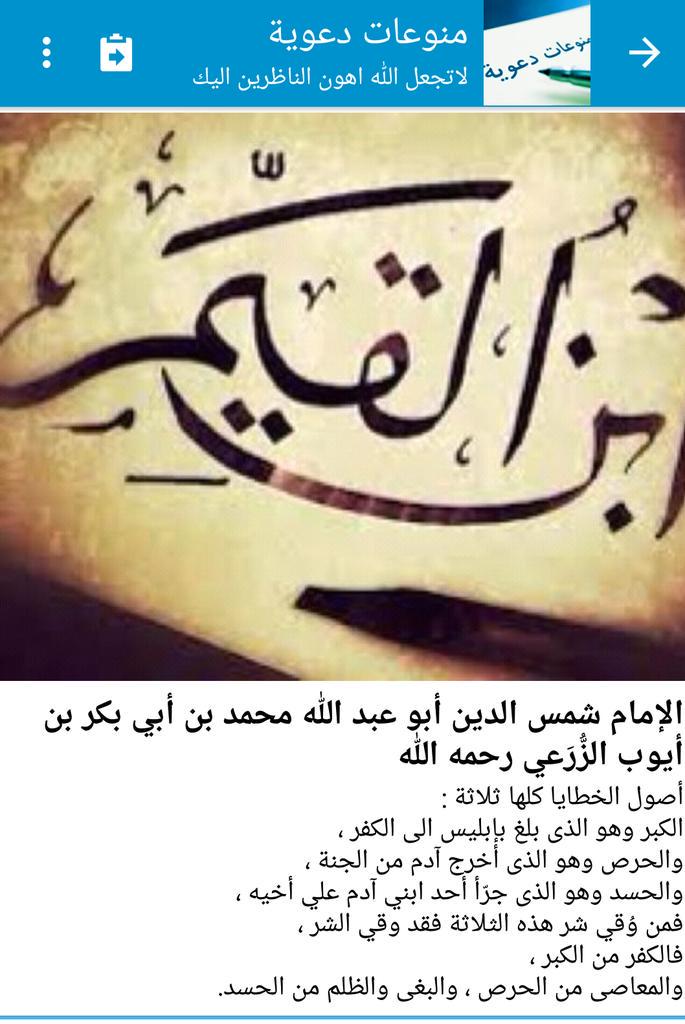 منوعات دعوية
لاتجعل الله اهون الناظرين اليك
منوعات دعوية
ابن القيم
الإمام شمس الدين أبو عبد الله محمد بن أبي بكر بن
أيوب الزُّرَعي رحمه الله
أصول الخطايا كلها ثلاثة :
الكبر وهو الذى بلغ بإبليس الى الكفر ،
والحرص وهو الذى أخرج آدم من الجنة ،
والحسد وهو الذى جرّأ أحد ابني آدم علي أخيه ،
فمن وُقي شر هذه الثلاثة فقد وقي الشر ،
فالكفر من الكبر ،
والمعاصى من الحرص ، والبغى والظلم من الحسد.